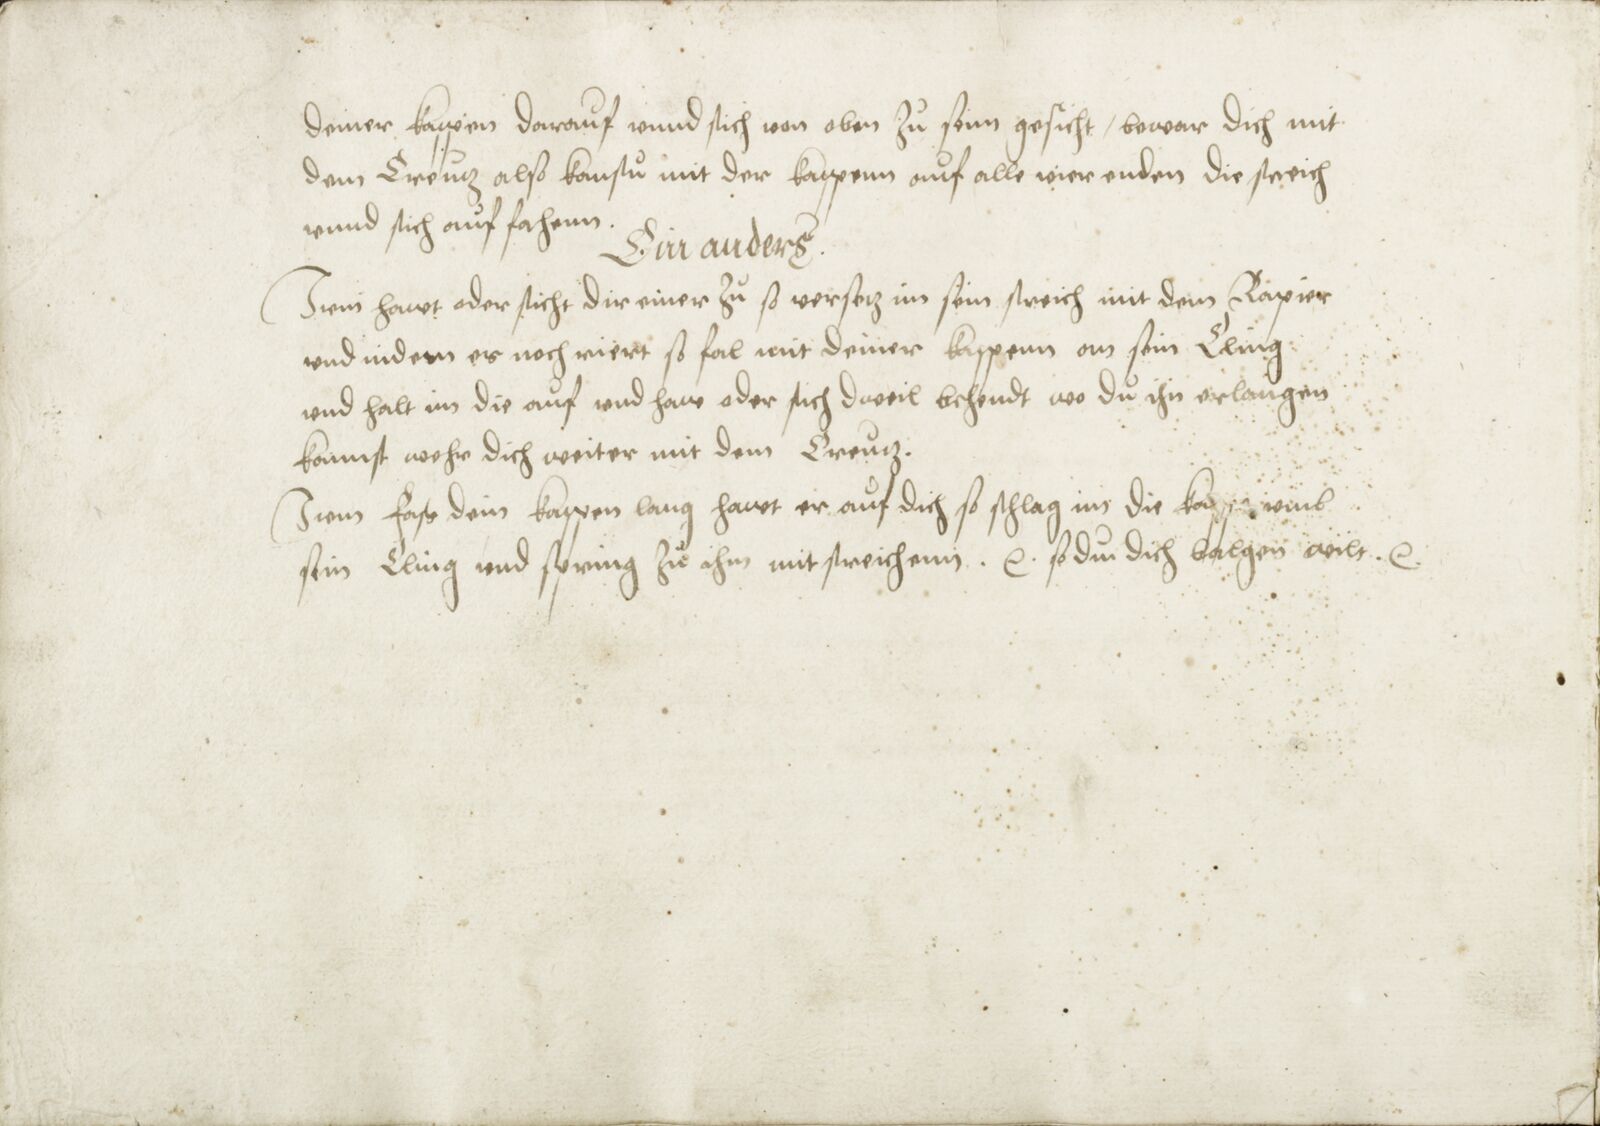 deiner kappen darauf vnnd stich von oben zu seim gesicht / bewar dich mit
dem Creutz also kanstu mit der kappenn auf alle vier enden die streich
vnnd stich auf fahenn.
Ein anders.
Item hawt oder sticht dir einer zu so versetz im sein streich mit dem Rapier
vnd indem er noch riert so fal mit deiner kappenn om sein Cling
vnd halt im die auf vnd haw oder stich dweil behendt wo du ihn erlangen
kannst wehr dich weiter mit dem Creutz.
Item Fass dein kappen lang hawt er auf dich so schlag im die kappen vmb
sein Cling vnd spring zu ihm mit streichenn. so du dich balgen wilt.